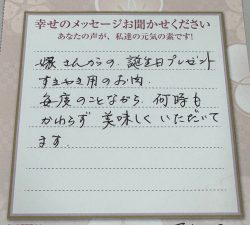 幸せのメッセージお聞かせください
あなたの声が、私達の元気の素です!
嫁さんからの誕生日プレゼント
すきやき用のお肉。
毎度のことながら、何時も
かわらず美味しくいただいて
ます。